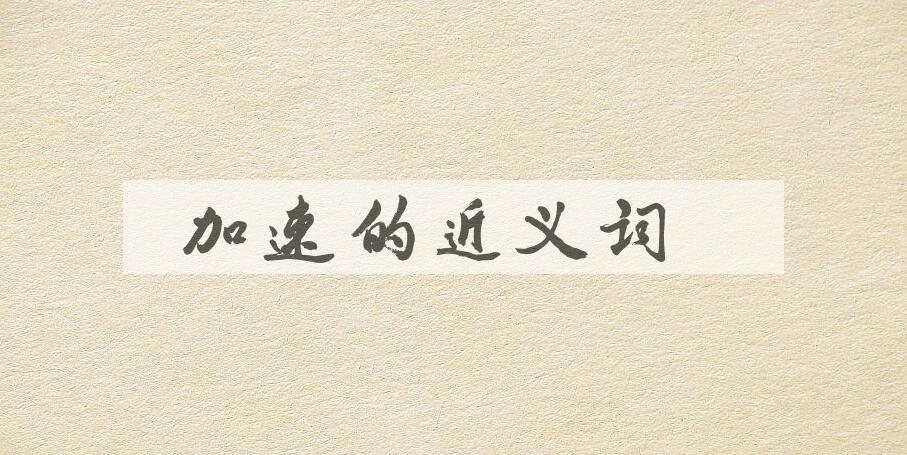 加速的近义词